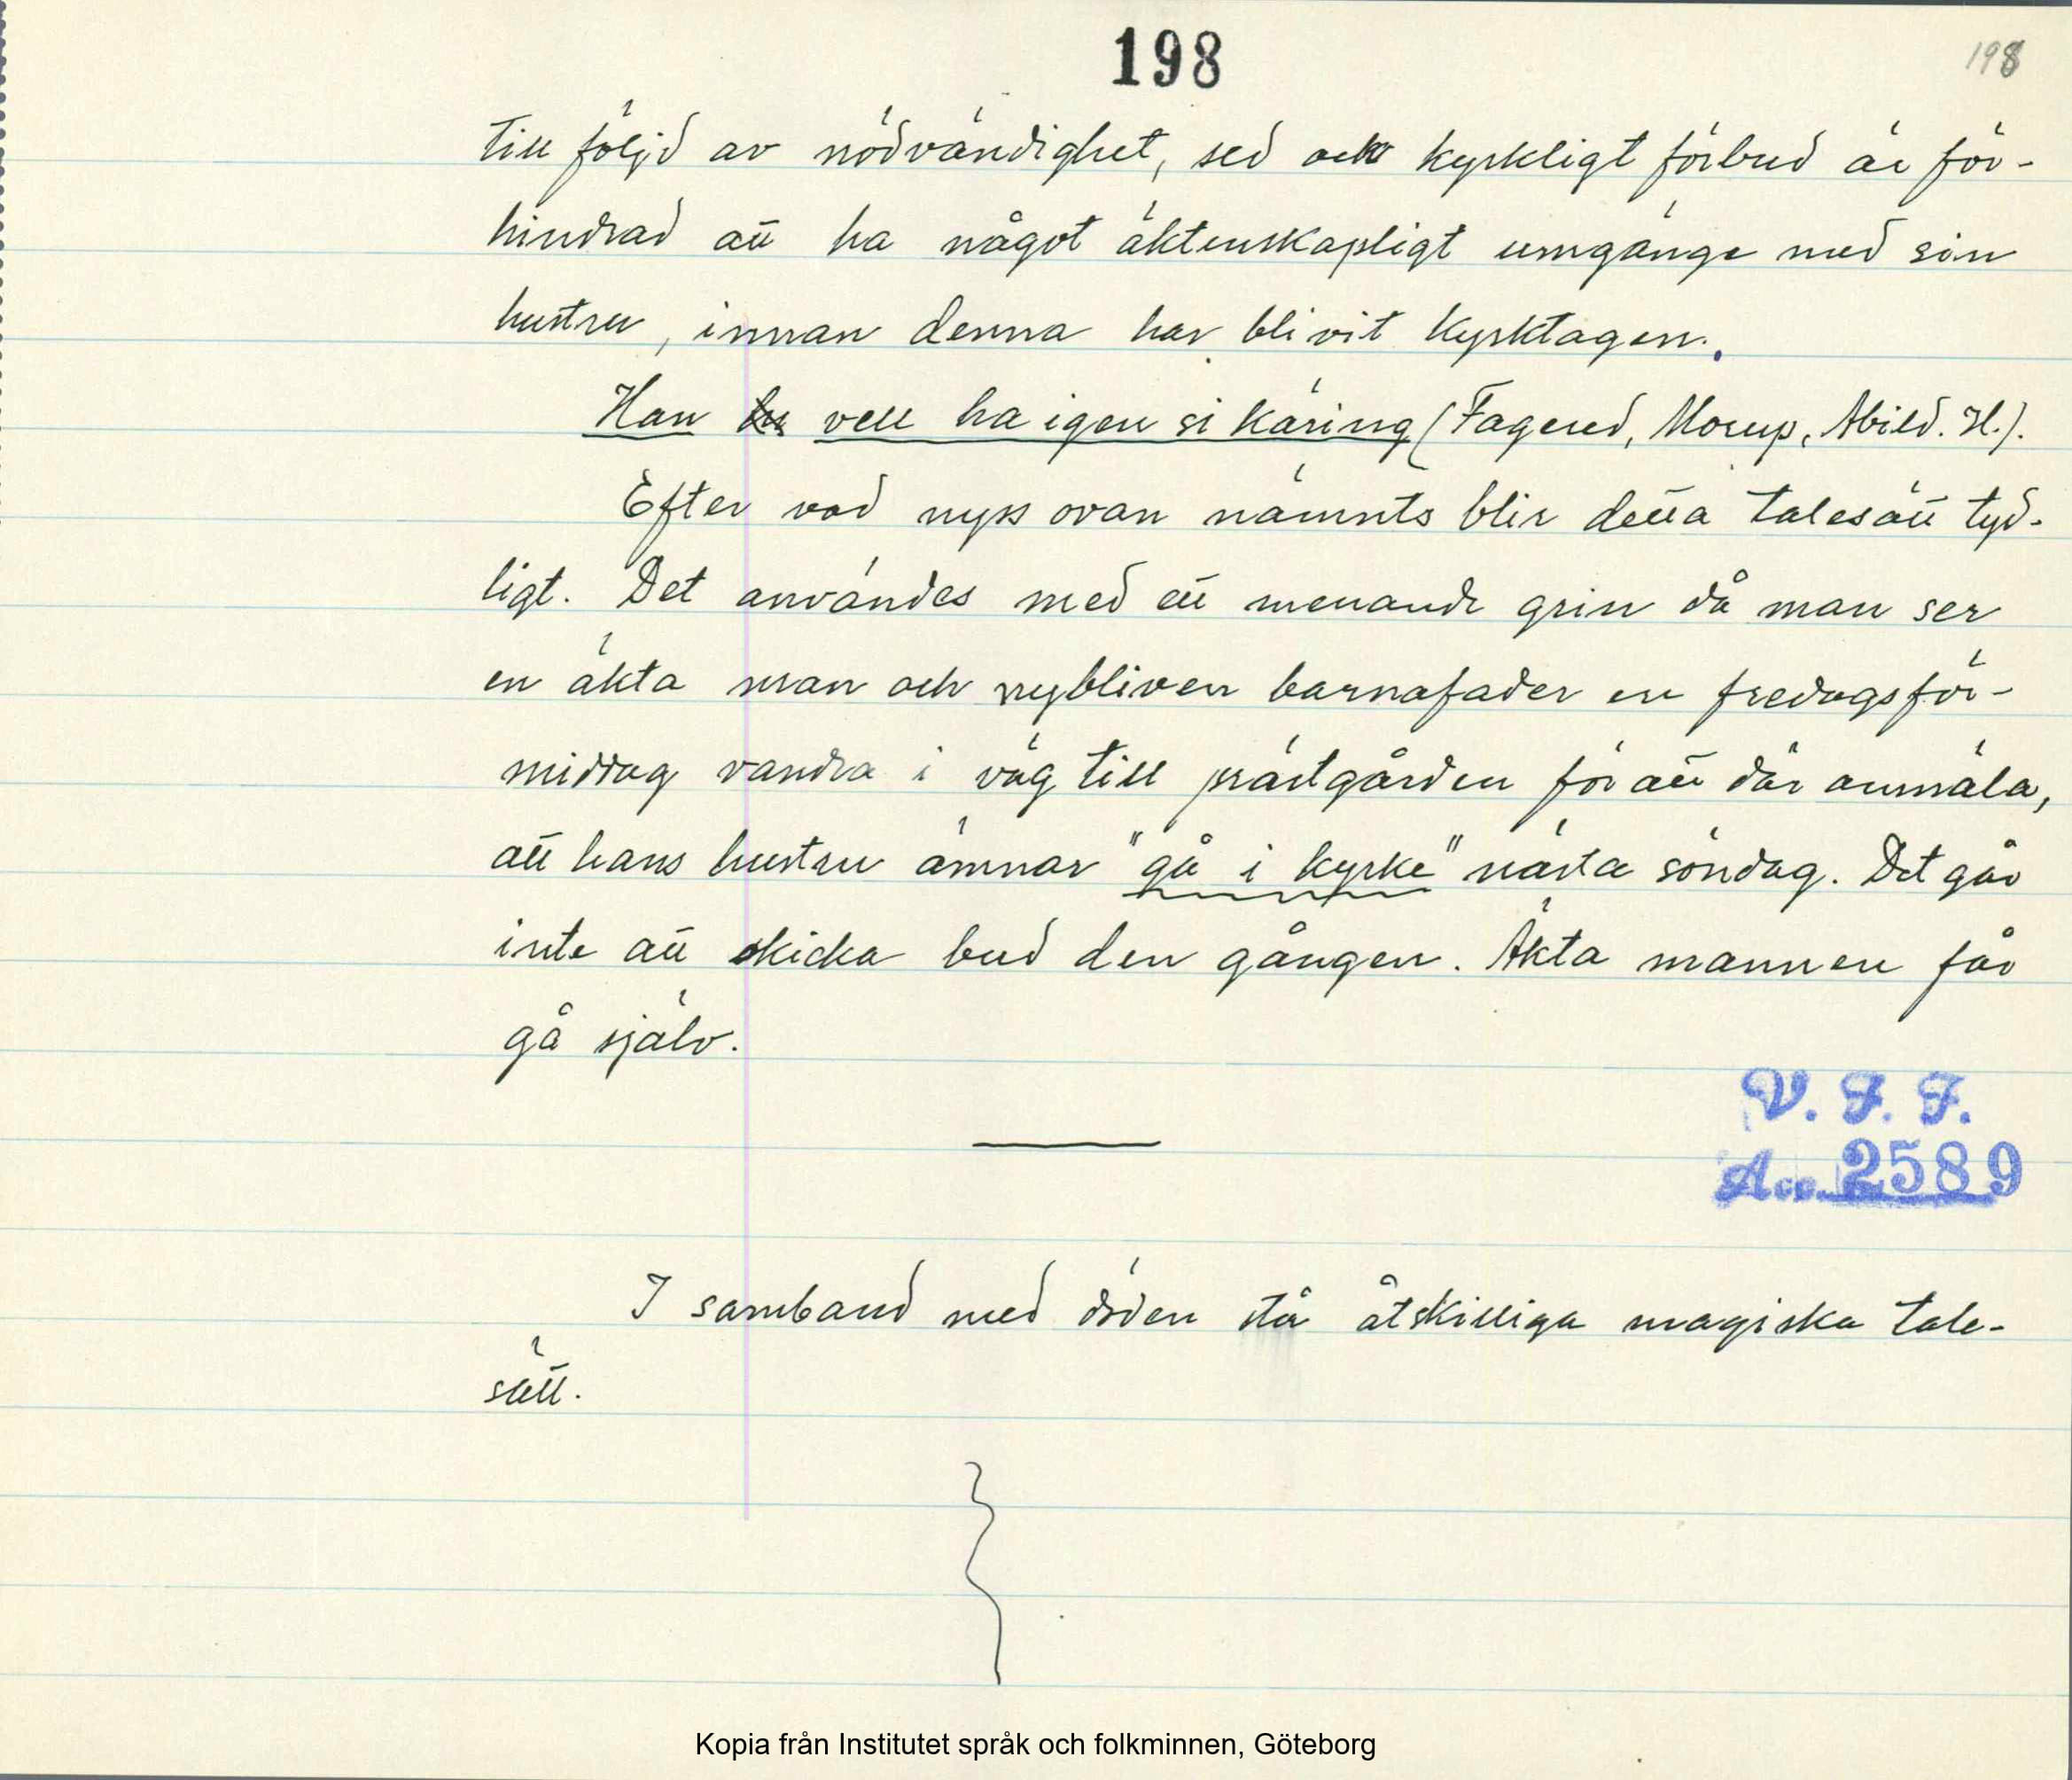 198
198
till följd av nödvändighet, sed och kyrkligt förbud är för-
hindrad att ha något äktenskapligt umgänge med sin
hustru, innan denna har blivit kyrktagen.
Han vell ha igen si käring (Fagered, Morup, Abild. H.).
Efter vad nyss ovan nämnts blir detta talesätt tyd-
ligt. Det användes med ett menande grin då man ser
en äkta man och nybliven barnafader en fredagsför-
middag vandra i väg till prästgården för att där anmäla,
att hans hustru ämnar "gå i kyrke" nästa söndag. Det går
inte att skicka bud den gången. Äkta mannen får
gå själv.
V. F. F.
Acc. 2589
I samband med döden stå åtskilliga magiska tale-
sätt.
Kopia från Institutet språk och folkminnen, Göteborg